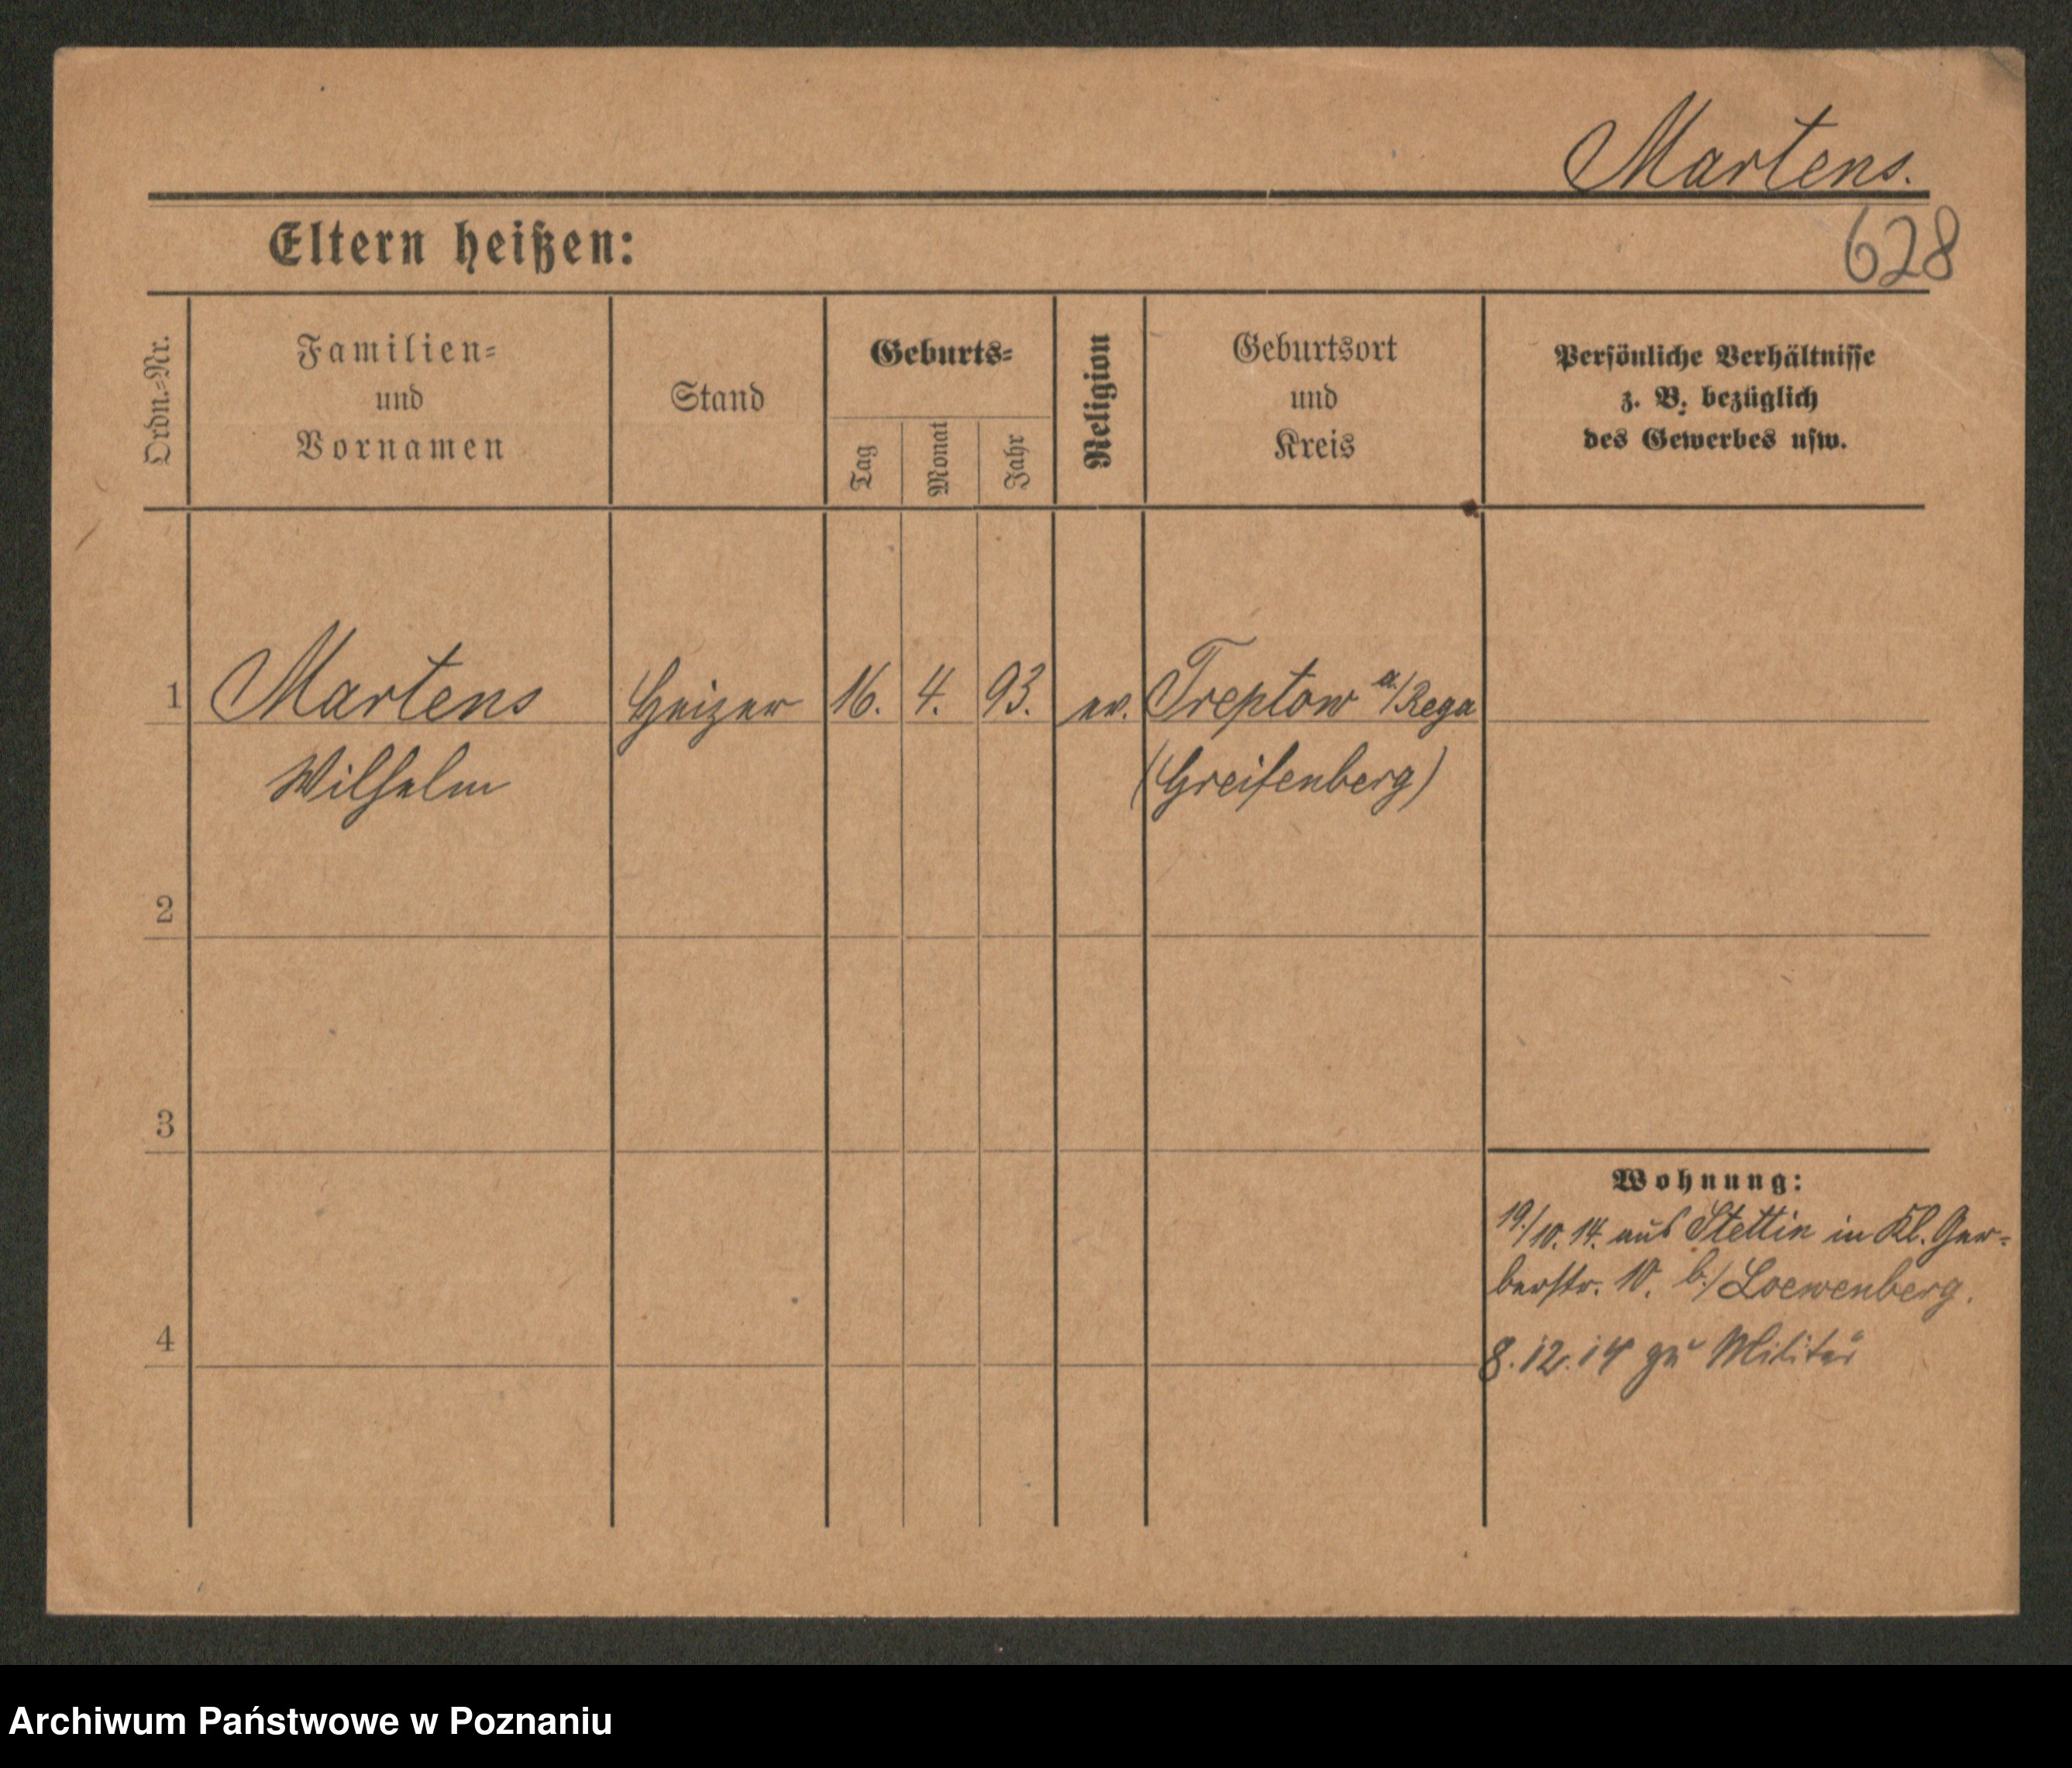 Martens.
628
Eltern heißen:
Ordn.-Nr.
Familien-
und
Vornamen
Stand
Geburts-
Tag
Monat
Jahr
Religion
Geburtsort
und
Kreis
Persönliche Verhältnisse
z. B. bezüglich
des Gewerbes usw.
1 Martens Heizer 16. 4. 93. ev. Treptow a./Rega
Wilhelm (Greifenberg)
2
3
Wohnung:
19./10. 14. aus Stettin in Kl. Ger-
berstr. 10. b./Loewenberg.
4
8.12.14 zu Militär
Archiwum Państwowe w Poznaniu